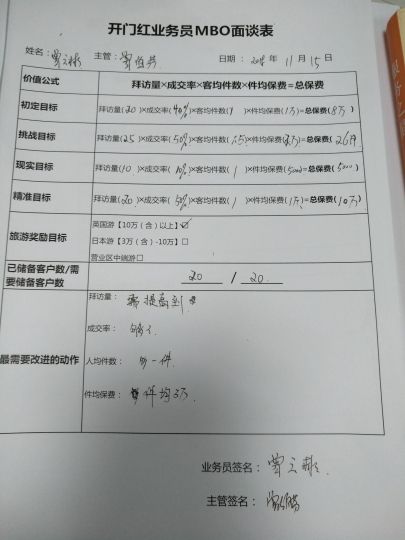 开门红业务员MBO面谈表
姓名： 主管： 日期： 年 11 月 15 日
价值公式 拜访量×成交率×客均件数×件均保费=总保费
初定目标 拜访量(20)×成交率(40%)×客均件数(1)×件均保费(1万)=总保费(8万)
挑战目标 拜访量(25)×成交率(50%)×客均件数( )×件均保费( )=总保费( )
现实目标 拜访量(10)×成交率(10%)×客均件数(1)×件均保费(5000)=总保费(5000)
精准目标 拜访量(20)×成交率(50%)×客均件数(1)×件均保费(1万)=总保费(10万)
旅游奖励目标
英国游【10万（含）以上】☑
日本游【3万（含）-10万】□
营业区中端游□
已储备客户数/需要储备客户数 20 / 20
最需要改进的动作
拜访量： 需提高到
成交率：
人均件数： 一件
件均保费： 件均3万
业务员签名：
主管签名：